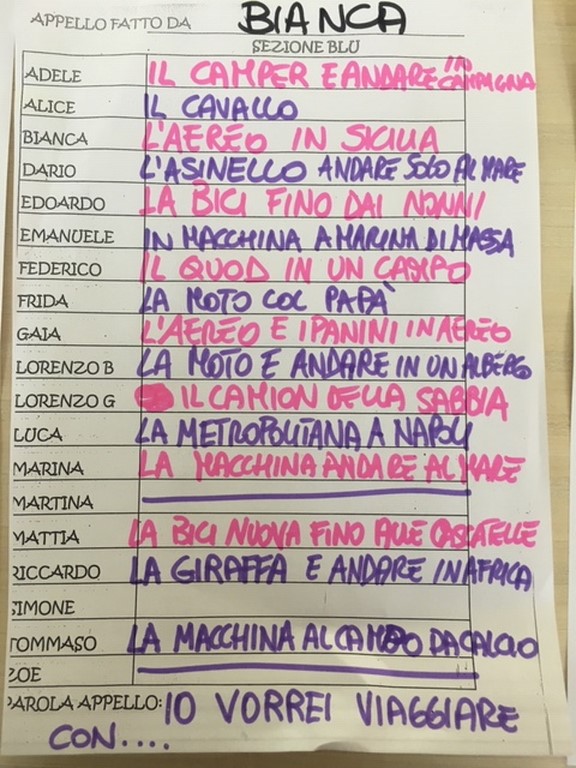 APPELLO FATTO DA BIANCA
SEZIONE BLU
ADELE IL CAMPER E ANDARE IN CAMPAGNA
ALICE IL CAVALLO
BIANCA L'AEREO IN SICILIA
DARIO L'ASINELLO ANDARE SOLO AL MARE
EDOARDO LA BICI FINO DAI NONNI
EMANUELE IN MACCHINA A MARINA DI MASSA
FEDERICO IL QUOD IN UN CAMPO
FRIDA LA MOTO COL PAPÀ
GAIA L'AEREO E I PANINI IN AEREO
LORENZO B LA MOTO E ANDARE IN UN ALBERGO
LORENZO G IL CAMION DELLA SABBIA
LUCA LA METROPOLITANA A NAPOLI
MARINA LA MACCHINA ANDARE AL MARE
MARTINA
MATTIA LA BICI NUOVA FINO ALLE CASCATELLE
RICCARDO LA GIRAFFA E ANDARE IN AFRICA
SIMONE
TOMMASO LA MACCHINA AL CAMPO DA CALCIO
ZOE
PAROLA APPELLO: IO VORREI VIAGGIARE
CON....